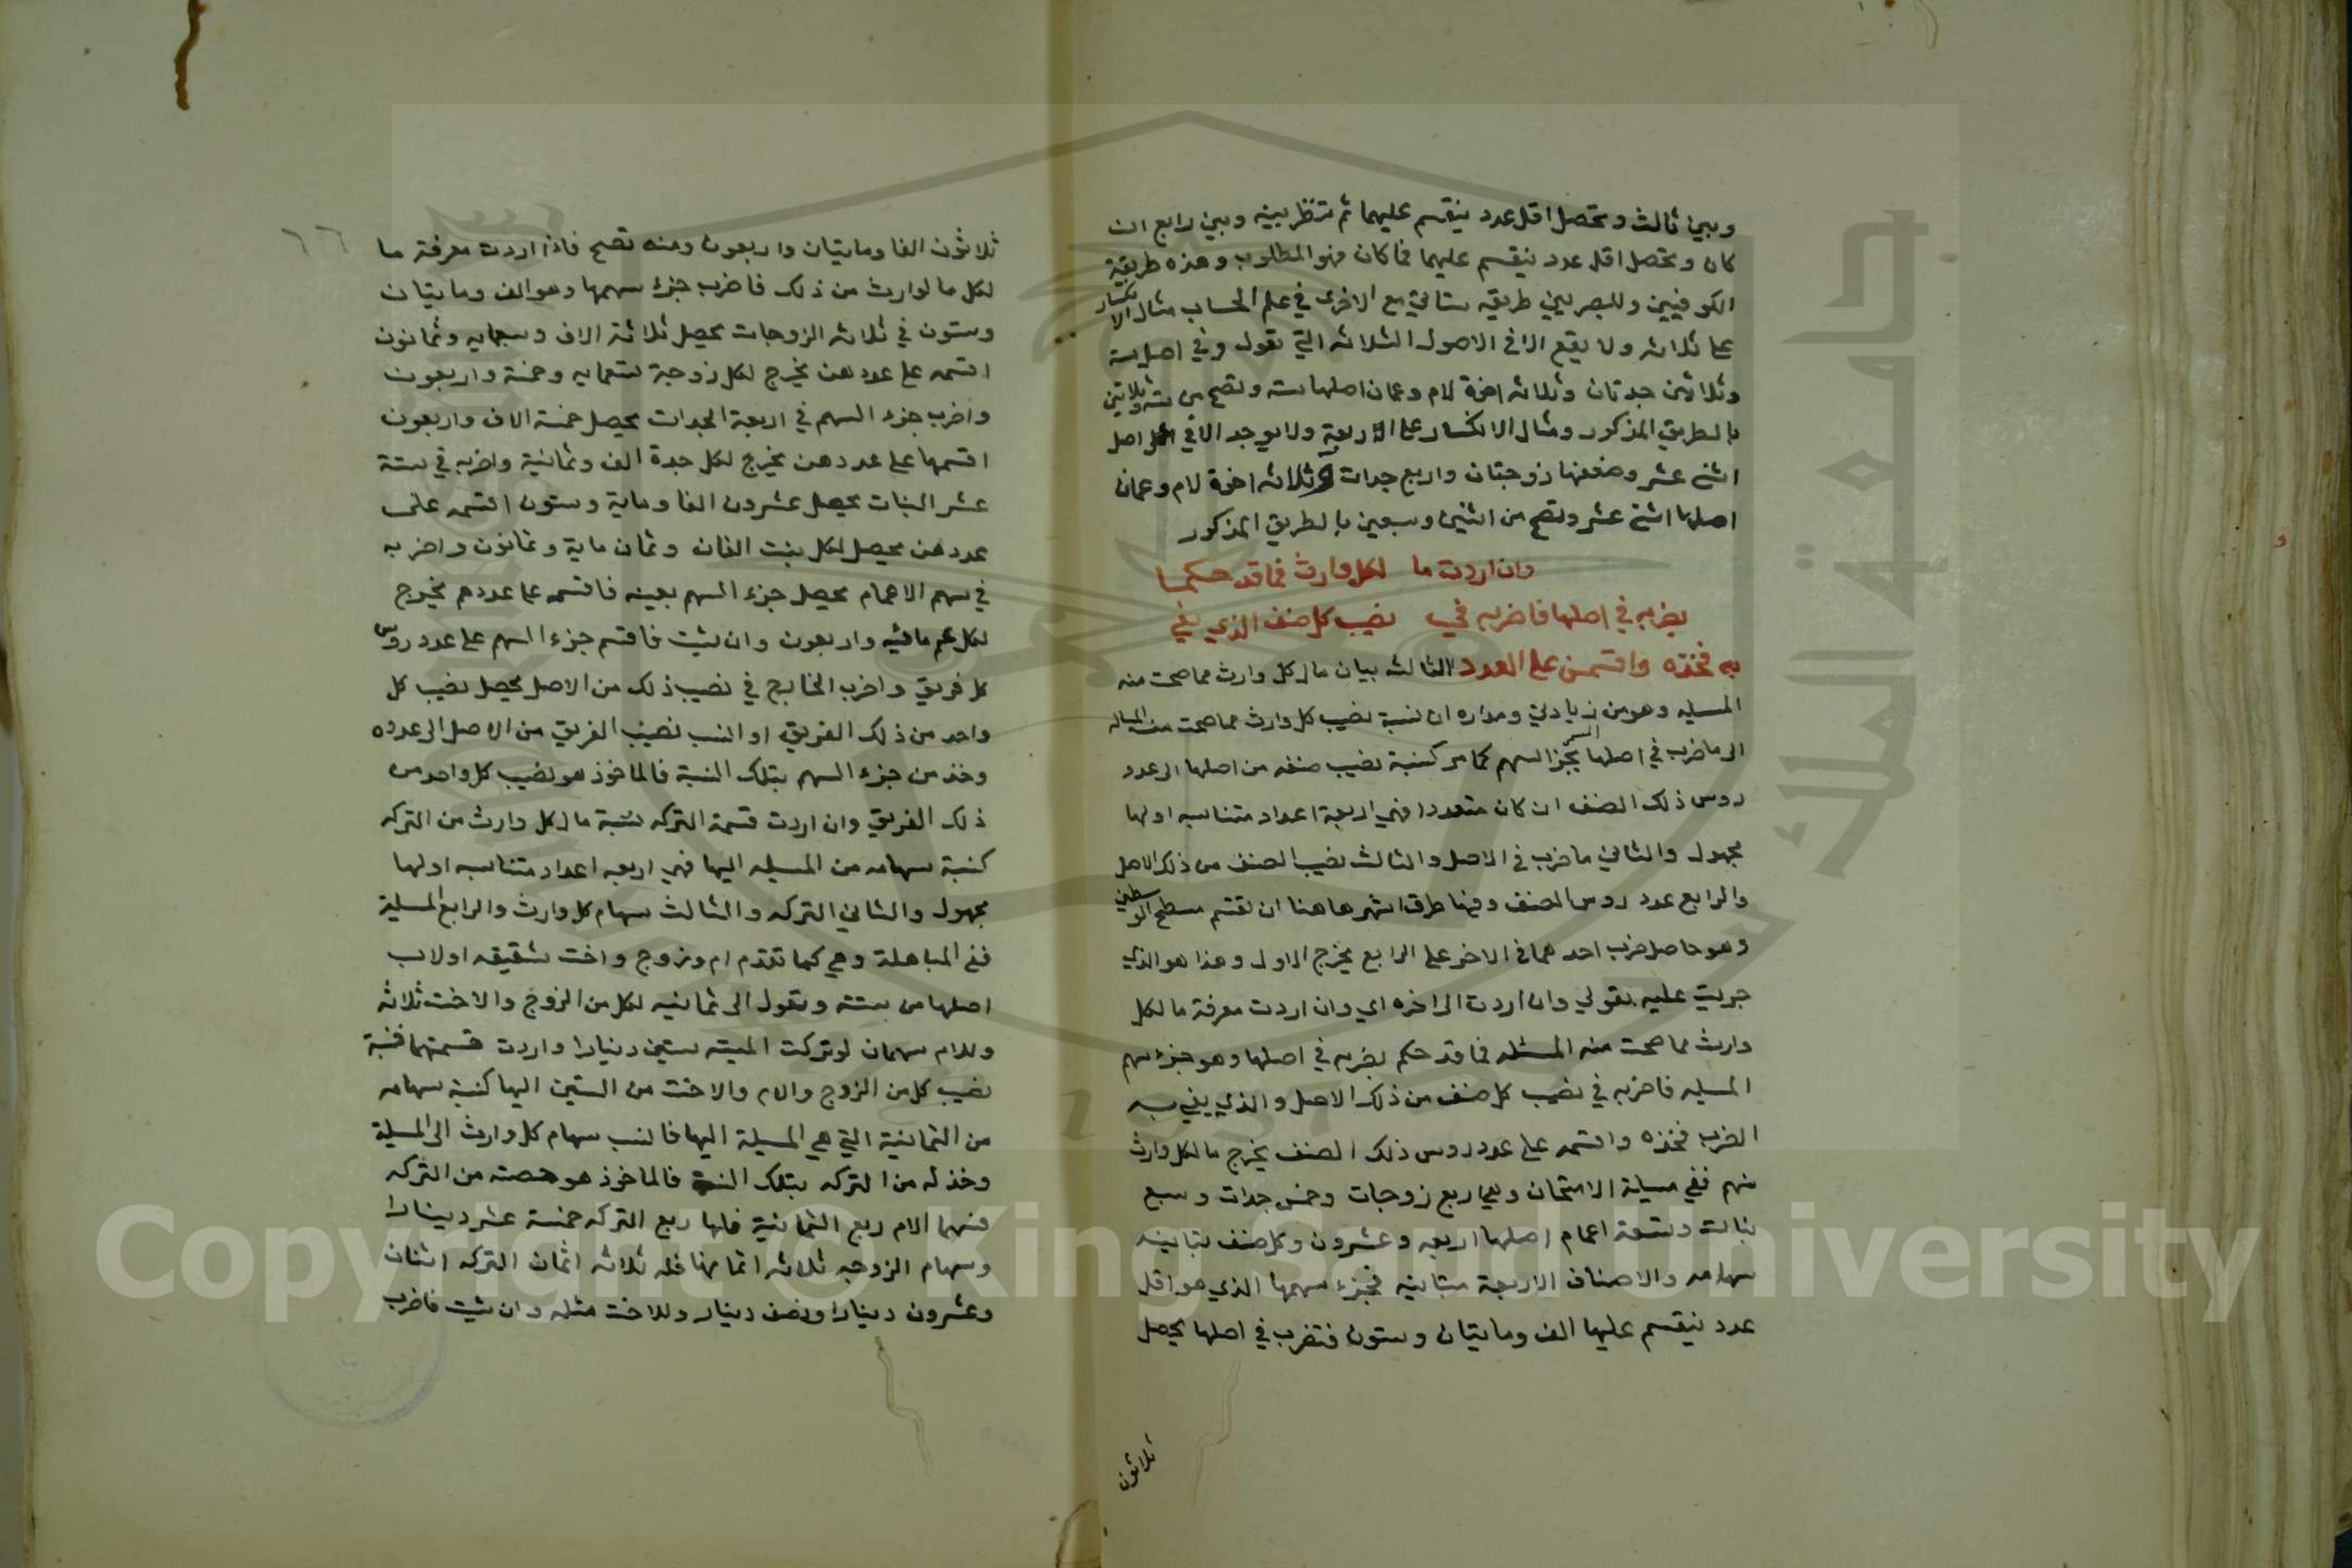 وبين ثالث وتحصل اقل عدد ينقسم عليهما ثم تنظر بينه وبين رابع ان
كان وتحصل اقل عدد ينقسم عليهما فما كان فهو المطلوب وهذه طريقة
الكوفيين وللبصريين طريقه ستاتي مع الاخرى في علم الحساب مثال الانكسار
على ثلاثه ولا يقع الا في الاصول الثلاثه التي تعول وفي اصل ستة
وثلاثين جدتان وثلاثه اخوة لام وعمان اصلها سته وتصح من سته وثلاثين
بالطريق المذكور ومثال الانكسار على الاربعة ولا يوجد الا في اصل
اثني عشر وضعفها زوجتان واربع جدات وثلاثه اخوة لام وعمان
اصلها اثني عشر وتصح من اثنين وسبعين بالطريق المذكور
وان اردت ما لكل وارث فما قد حكما
بضربه في اصلها فاضربه في نصيب كل صنف الذي يفي
به فخذه واقسمن على العدد الثالث بيان ما لكل وارث مما صحت منه
المسيله وهو من زيادتي ومداره ان نسبة نصيب كل وارث مما صحت منه المساله
الى ما ضرب في اصلها بجزء السهم كما مر كنسبة نصيب صنفه من اصلها الى عدد
روس ذلك الصنف ان كان متعددا فهي اربعة اعداد متناسبه اولها
مجهول والثاني ما ضرب في الاصل والثالث نصيب الصنف من ذلك الاصل
والرابع عدد روس الصنف وفيها طرق اشهرها هنا ان تقسم مسطح الوسطين
وهو حاصل ضرب احدهما في الاخر على الرابع يخرج الاول وهذا هو الذي
جريت عليه بقولي وان اردت الى اخره اي وان اردت معرفة ما لكل
وارث مما صحت منه المسئله فما قد حكم بضربه في اصلها وهو جزء سهم
المسيله فاضربه في نصيب كل صنف من ذلك الاصل والذي يفي به
الضرب فخذه واقسمه على عدد روس ذلك الصنف يخرج ما لكل وارث
منهم ففي مسيلة الامتحان وهي اربع زوجات وخمس جدات وسبع
بنات وتسعة اعمام اصلها اربعه وعشرون وكل صنف تباينه
سهامه والاصناف الاربعة متباينه فجزء سهمها الذي هو اقل
عدد ينقسم عليها الف ومايتان وستون فتضرب في اصلها يحصل
ثلاثون
٦٦
ثلاثون الفا ومايتان واربعون ومنه تصح فاذا اردت معرفة ما
لكل ما لوارث من ذلك فاضرب جزء سهمها وهو الف ومايتان
وستون في ثلاثه الزوجات يحصل ثلاثة الاف وسبعمايه وثمانون
اقسمه على عددهن يخرج لكل زوجة تسعمايه وخمسة واربعون
واضرب جزء السهم في اربعة الجدات يحصل خمسة الاف واربعون
اقسمها على عددهن يخرج لكل جدة الف وثمانية واضربه في ستة
عشر البنات يحصل عشرون الفا وماية وستون اقسمه على
عددهن يحصل لكل بنت الفان وثمان ماية وثمانون واضربه
في سهم الاعمام يحصل جزء السهم بعينه فاقسمه على عددهم يخرج
لكل عم مائه واربعون وان شيت فاقسم جزء السهم على عدد روس
كل فريق واضرب الخارج في نصيب ذلك من الاصل يحصل نصيب كل
واحد من ذلك الفريق او انسب نصيب الفريق من الاصل الى عدده
وخذ من جزء السهم بتلك النسبة فالماخوذ هو نصيب كل واحد من
ذلك الفريق وان اردت قسمة التركه نسبة ما لكل وارث من التركه
كنسبة سهامه من المسيله اليها فهي اربعه اعداد متناسبه اولها
مجهول والثاني التركه والثالث سهام كل وارث والرابع المسيلة
ففي المباهلة وهي كما تقدم ام وزوج واخت شقيقه او لاب
اصلها من ستة وتعول الى ثمانيه لكل من الزوج والاخت ثلاثه
وللام سهمان لو تركت الميته ستين دينارا واردت قسمتها فنسبة
نصيب كل من الزوج والام والاخت من الستين اليها كنسبة سهامه
من الثمانية التي هي المسيلة اليها فانسب سهام كل وارث الى المسيلة
وخذ له من التركه بتلك النسبة فالماخوذ هو حصته من التركه
فسهما الام ربع الثمانية فلها ربع التركه خمسة عشر دينارا
وسهام الزوج ثلاثه اثمانها فله ثلاثه اثمان التركه اثنان
وعشرون دينارا ونصف دينار وللاخت مثله وان شيت فاضرب
Copyright © King Saud University